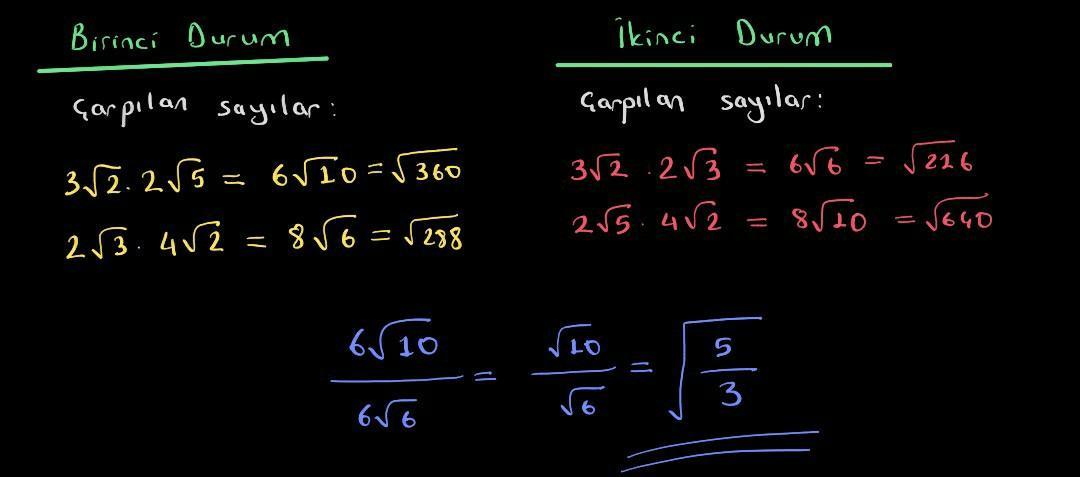 Birinci Durum
Çarpılan sayılar:
3√2 . 2√5 = 6√10 = √360
2√3 . 4√2 = 8√6 = √288
İkinci Durum
Çarpılan sayılar:
3√2 . 2√3 = 6√6 = √226
2√5 . 4√2 = 8√10 = √640
6√10 / 6√6 = √10 / √6 = √(5/3)